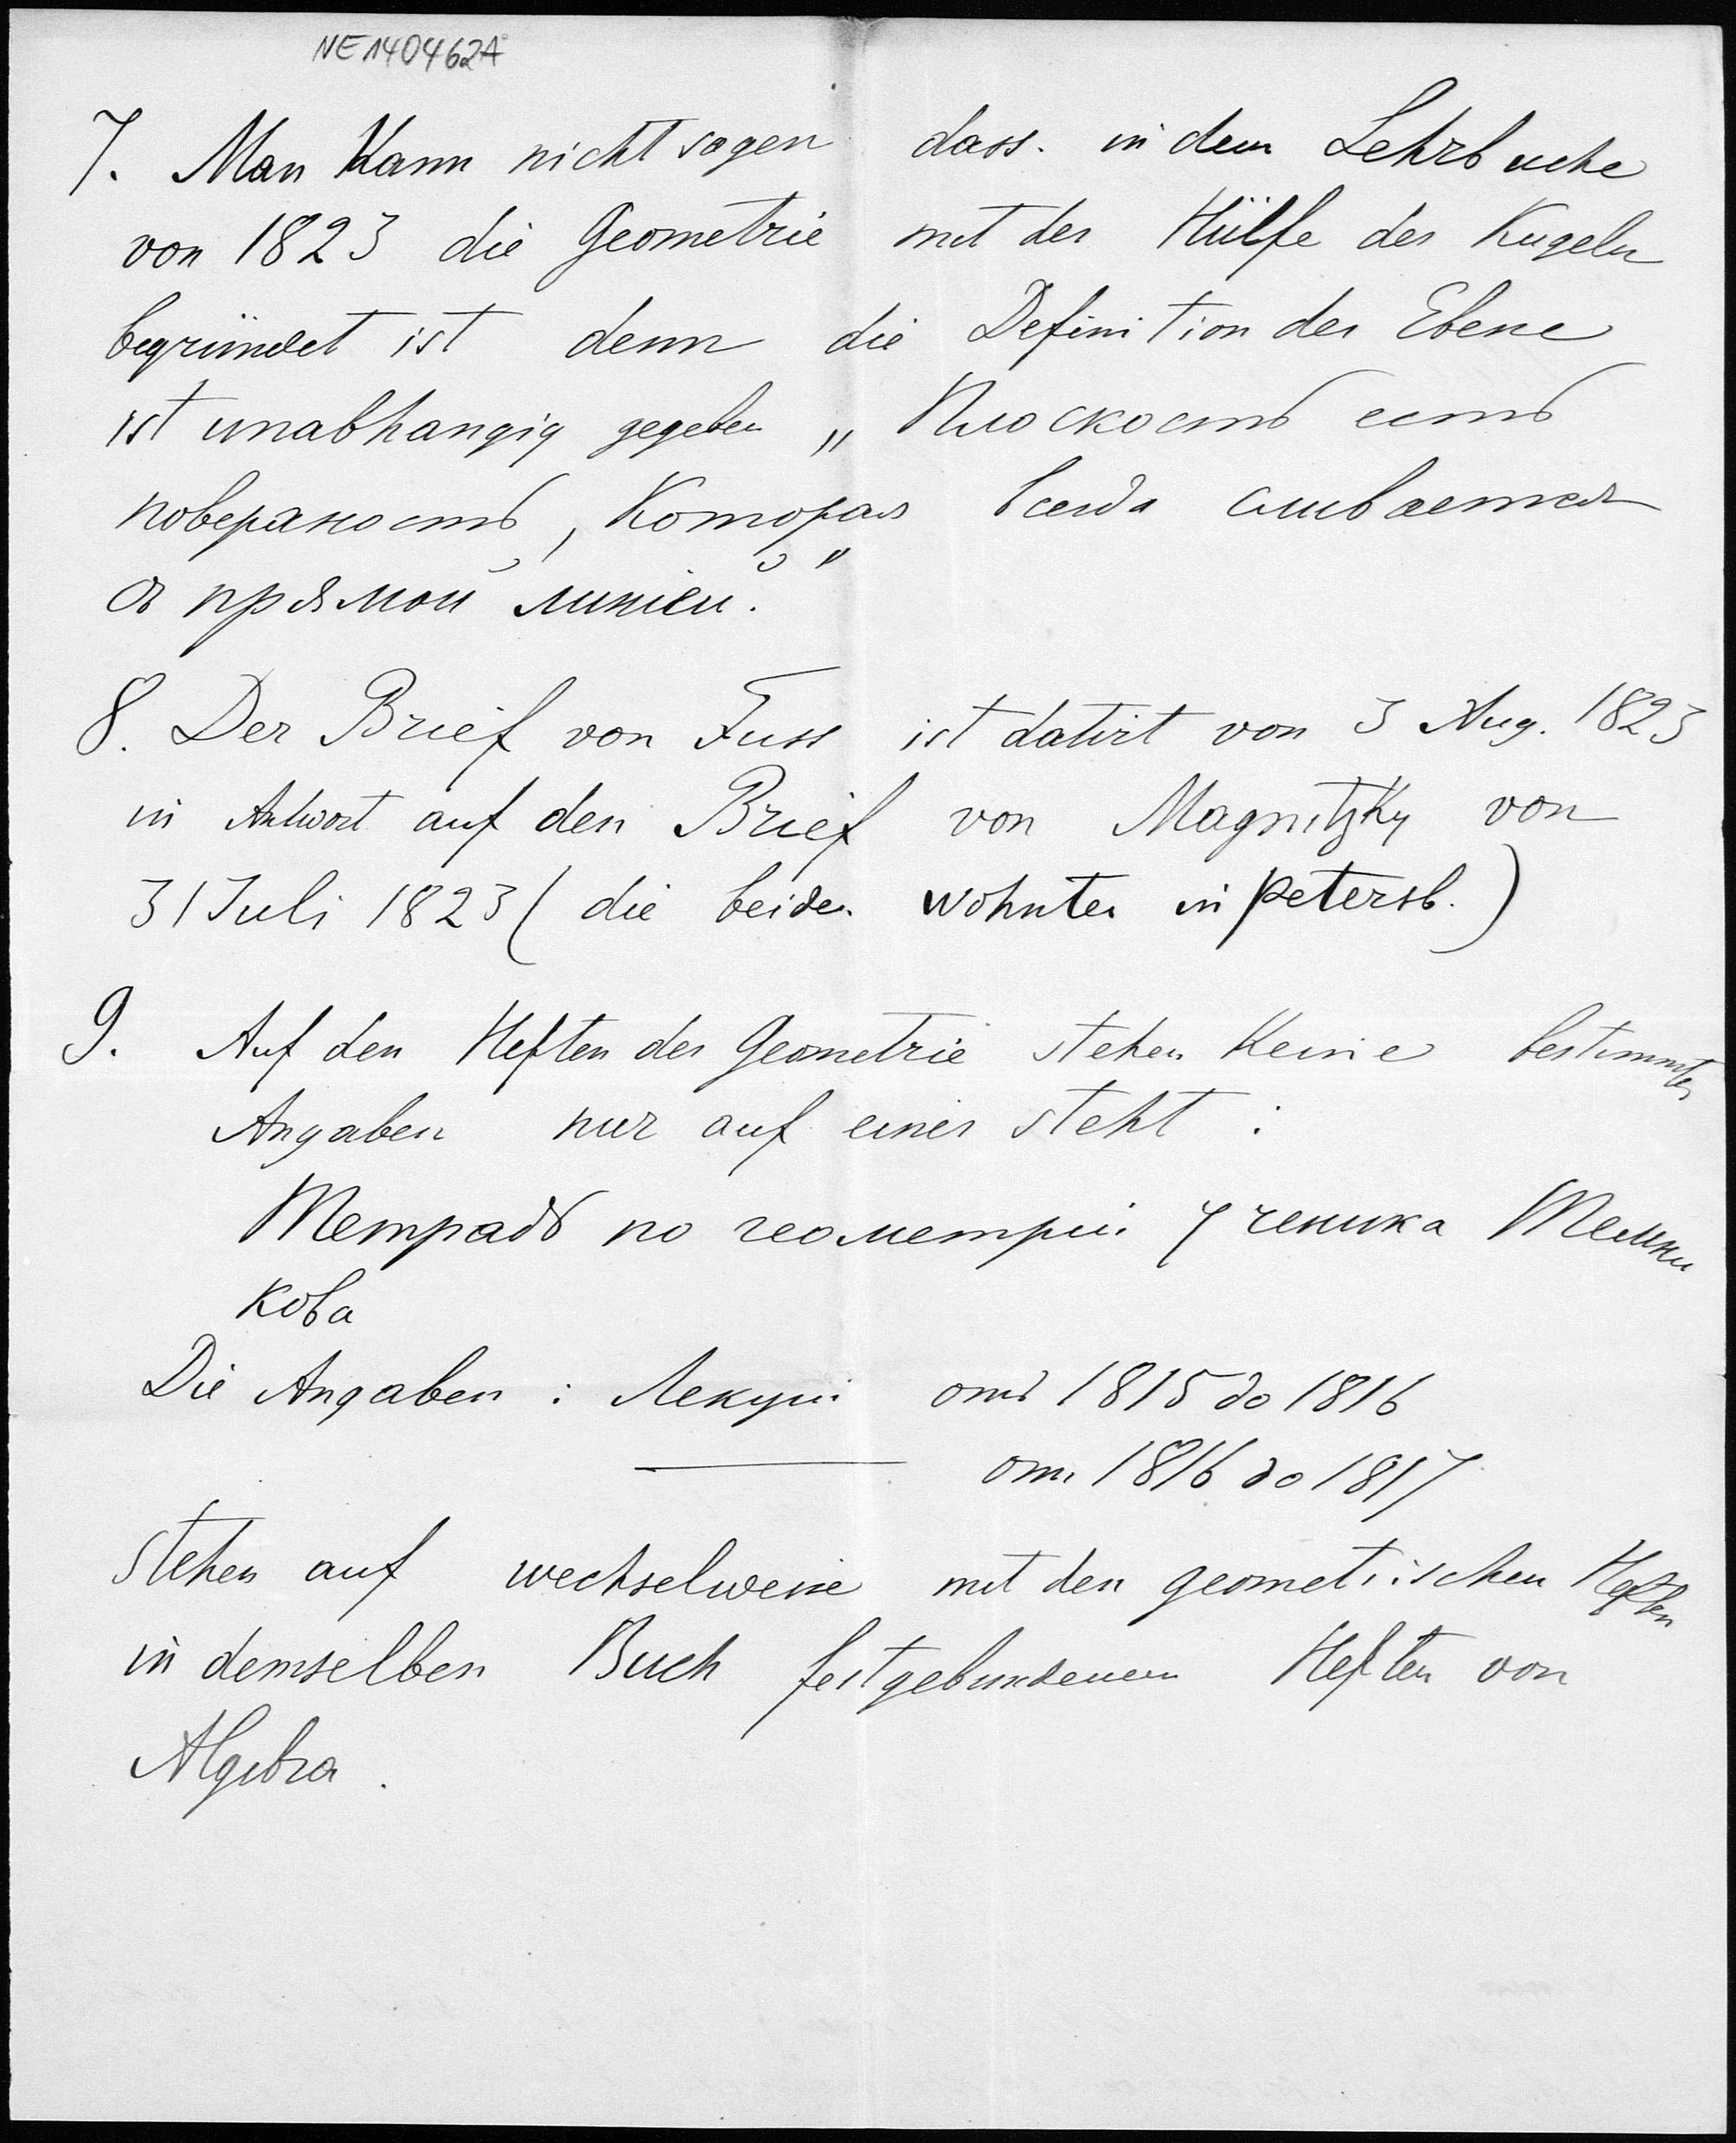 NE140462A
7. Man kann nicht sagen dass in dem Lehrbuche
von 1823 die Geometrie mit der Hülfe der Kugeln
begründet ist denn die Definition der Ebene
ist unabhangig gegeben „Плоскость есть
поверхность, которая всегда сливается
съ прямой линіей."
8. Der Brief von Fuss ist datirt von 3 Aug. 1823
in Antwort auf den Brief von Magnitzky von
31 Juli 1823 (die beiden wohnten in Petersb.)
9. Auf den Heften der Geometrie stehen keine bestimmten
Angaben nur auf einer steht :
Тетрадь по геометріи Ученика Темни
кова
Die Angaben : Лекціи отъ 1815 до 1816
отъ 1816 до 1817
stehen auf wechselweise mit den geometrischen Heften
in demselben Buch festgebundenen Heften von
Algebra.